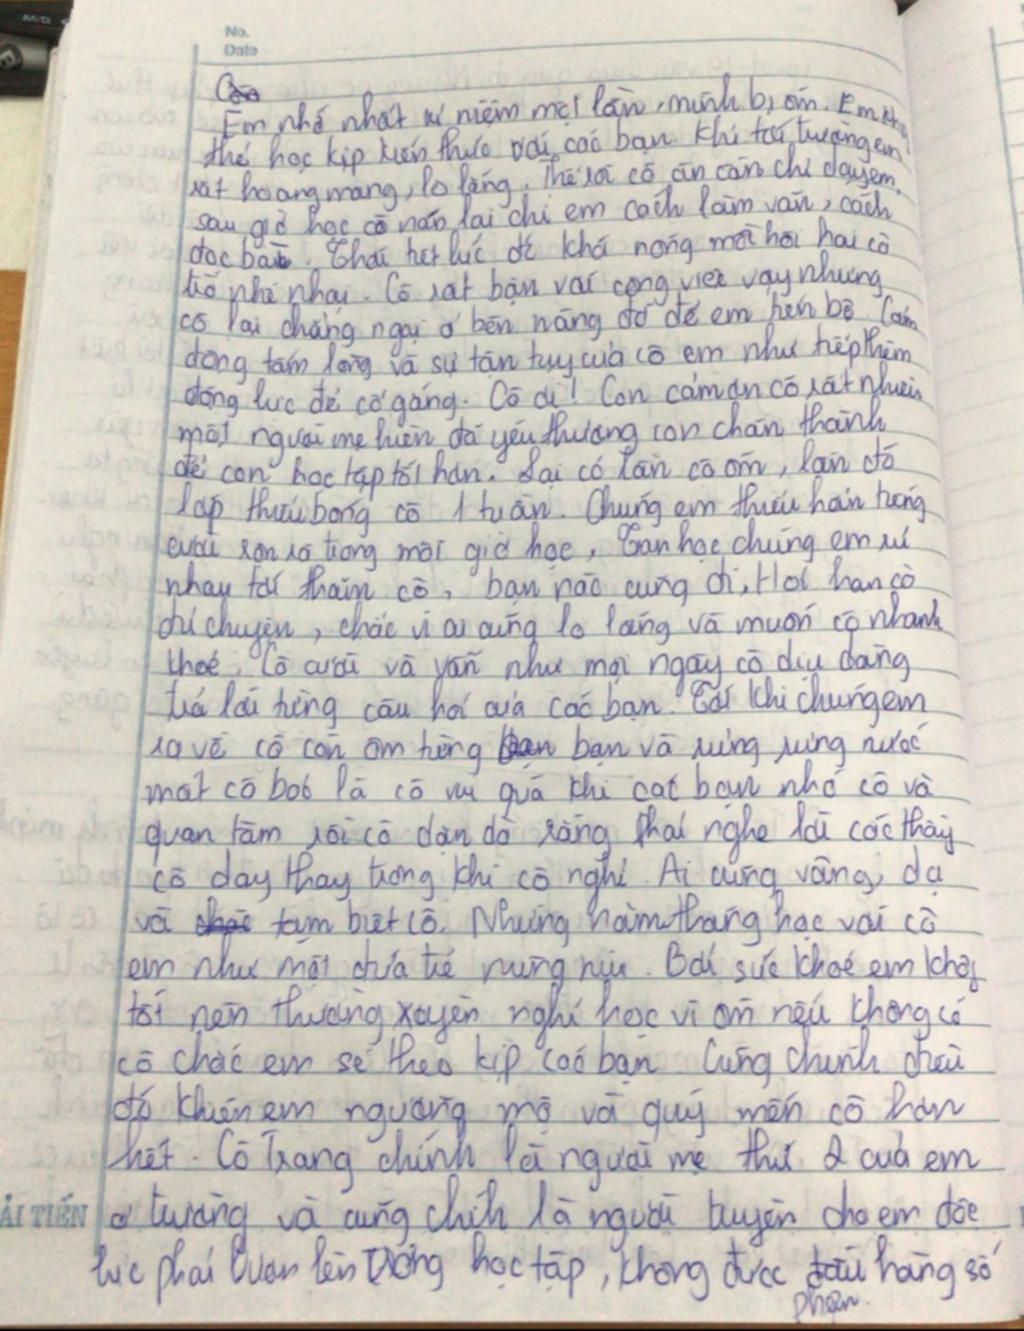 No.
Date
Em nhớ nhất kỉ niệm một lần, mình bị ốm. Em khô
thể học kịp kiến thức với các bạn. Khi tới trường em
rất hoang mang, lo lắng. Thế rồi cô ân cần chỉ dạy em,
sau giờ học cô nán lại chỉ em cách làm văn, cách
đọc bài. Thời tiết lúc đó khá nóng mồ hôi hai cô
trò nhễ nhại. Cô rất bận với công việc vậy nhưng
cô lại chẳng ngại ở bên nâng đỡ để em tiến bộ. Cảm
động tấm lòng và sự tận tụy của cô em như tiếp thêm
động lực để cố gắng. Cô ơi! Con cảm ơn cô rất nhiều
một người mẹ hiền đã yêu thương con chân thành
để con học tập tốt hơn. Lại có lần cô ốm, lần đó
lớp thiếu bóng cô 1 tuần. Chúng em thiếu hẳn tiếng
cười rộn rã trong mỗi giờ học, Tan học chúng em rủ
nhau tới thăm cô, bạn nào cũng đi, Hỏi han cô
đủ chuyện, chắc vì ai cũng lo lắng và muốn cô nhanh
khoẻ. Cô cười và vẫn như mọi ngày cô dịu dàng
trả lời từng câu hỏi của các bạn. Tới khi chúng em
ra về cô còn ôm từng bạn và rưng rưng nước
mắt cô bảo là cô vui quá khi các bạn nhớ cô và
quan tâm rồi cô dặn dò rằng phải nghe lời các thầy
cô dạy thay trong khi cô nghỉ. Ai cũng vâng, dạ
và tạm biệt cô. Những năm tháng học với cô
em như một đứa trẻ nưng nịu. Bởi sức khoẻ em khôg
tốt nên thường xuyên nghỉ học vì ốm nếu không có
cô chắc em sẽ theo kịp các bạn Cũng chính điều
đó khiến em ngưỡng mộ và quý mến cô hơn
hết. Cô Trang chính là người mẹ thứ 2 của em
ở trường và cũng chíh là người truyền cho em độg
lực phải vươn lên trong học tập, không được đầu hàng số
phận.
ẢI TIẾN